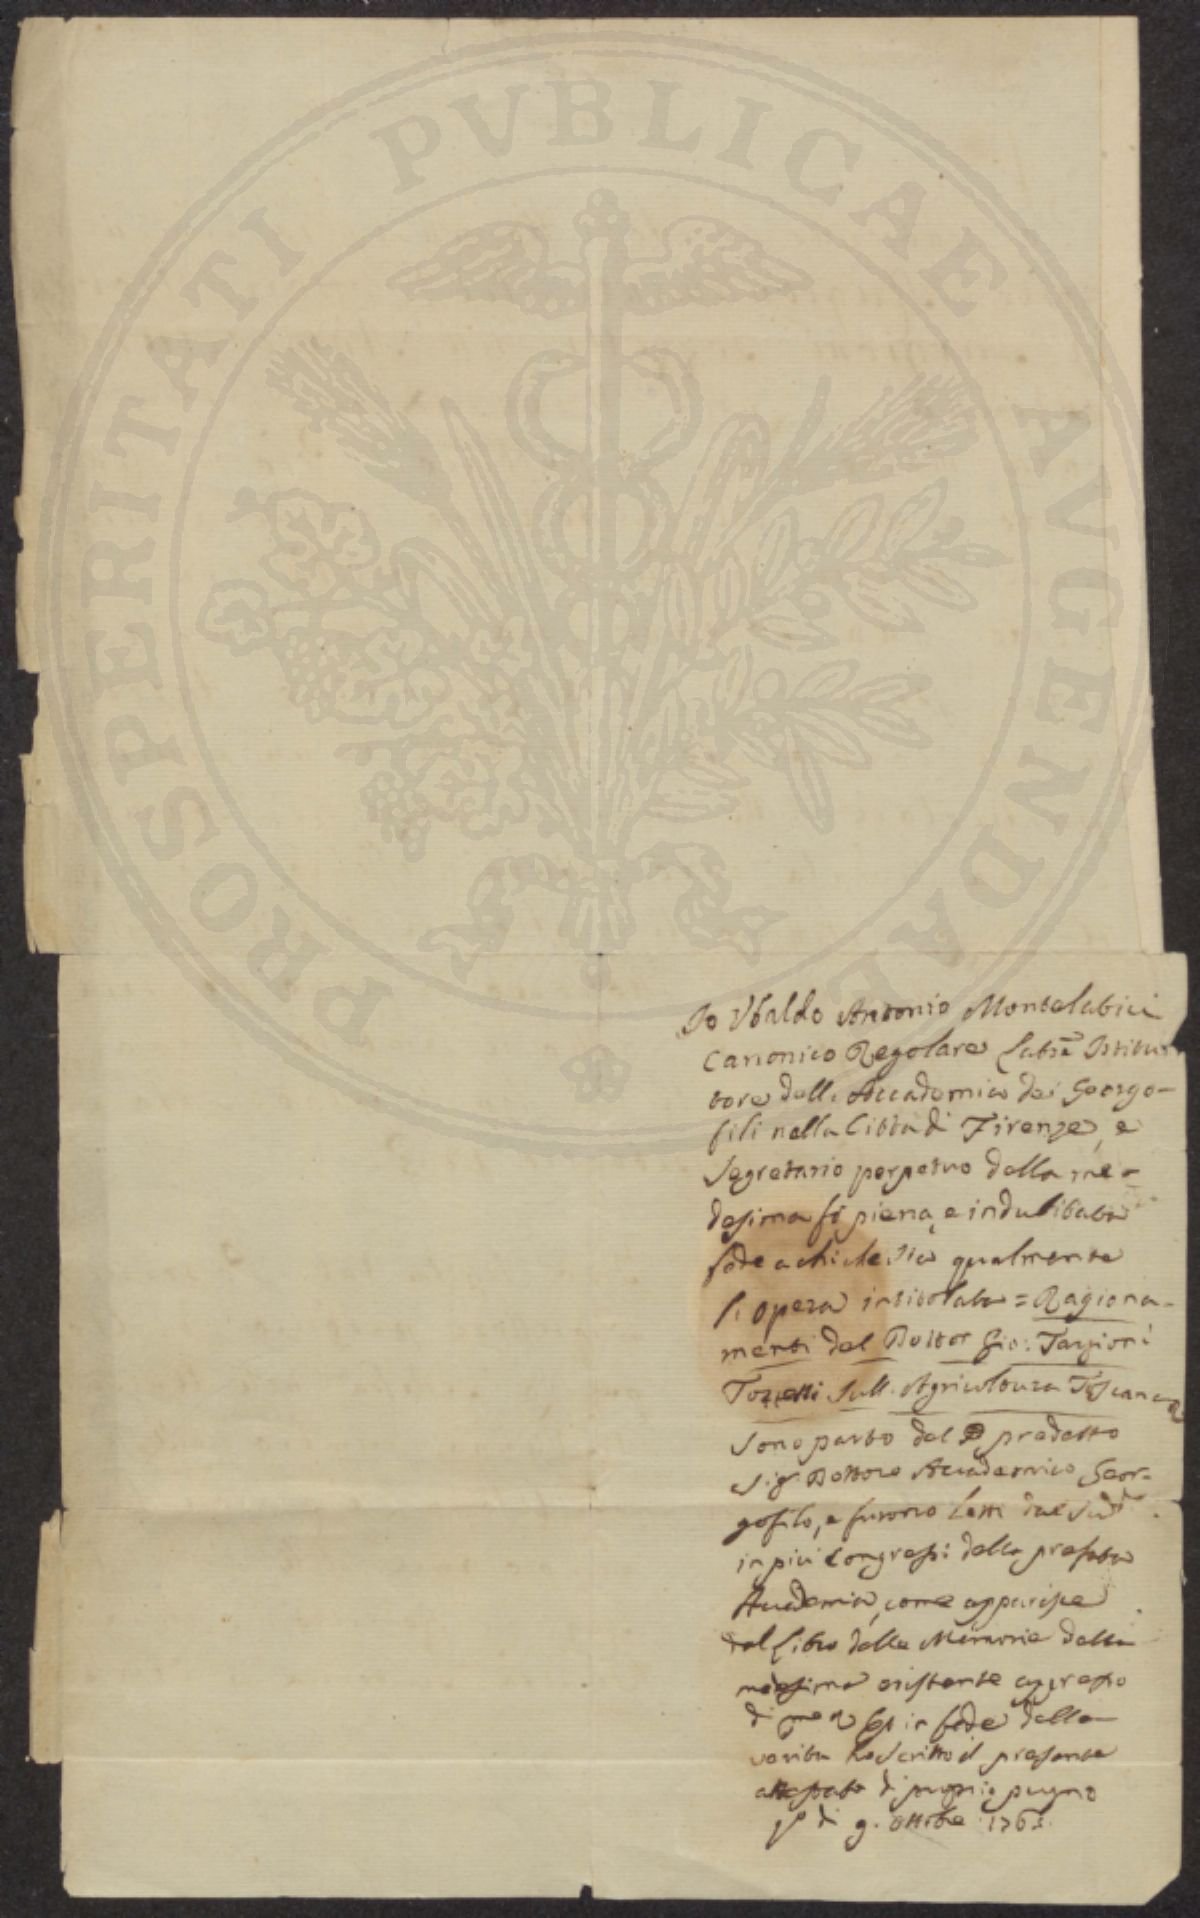 PROSPERITATI PVBLICAE AVGENDAE
Io Ubaldo Antonio Montelatici
Canonico Regolare Latrē Istitu-
tore dell. Accademia dei Georgo-
fili nella Città di Firenze, e
Segretario perpetuo della me-
desima fò piena, e indubitata
fede a chi che sia qualmente
l. opera intitolata = Ragiona-
menti del Dottor Gio: Targioni
Tozzetti sull. Agricoltura Toscana
sono parto del predetto
Sigr Dottore Accademico Geor-
gofilo, e furono letti dal sud
in più Congressi della prefata
Accademia, come apparisce
dal Libro delle Memorie della
medesima esistente appresso
di me in fede della
verità ho scritto il presente
attestato di proprio pugno
di 9. Ottobre